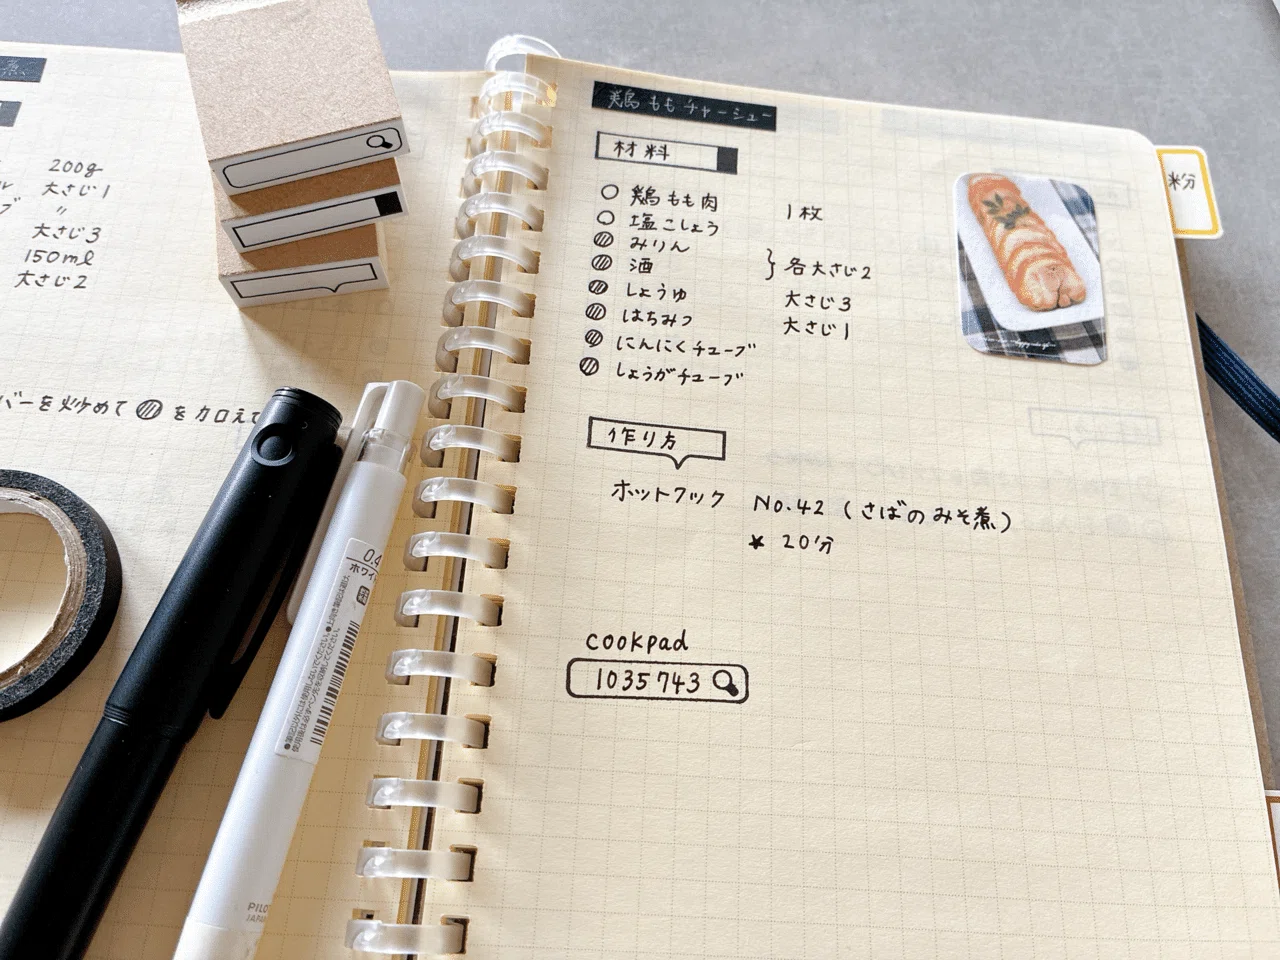 200g
大さじ1
〃
大さじ3
150ml
大さじ2
バーを炒めて◍を加えて
鶏ももチャーシュー
材料
○ 鶏もも肉 1枚
○ 塩こしょう
◍ みりん
◍ 酒 } 各大さじ2
◍ しょうゆ 大さじ3
◍ はちみつ 大さじ1
◍ にんにくチューブ
◍ しょうがチューブ
作り方
ホットクック No.42 (さばのみそ煮)
★ 20分
cookpad
1035743
粉
0.4
ホワイ
PILO
JAPAN